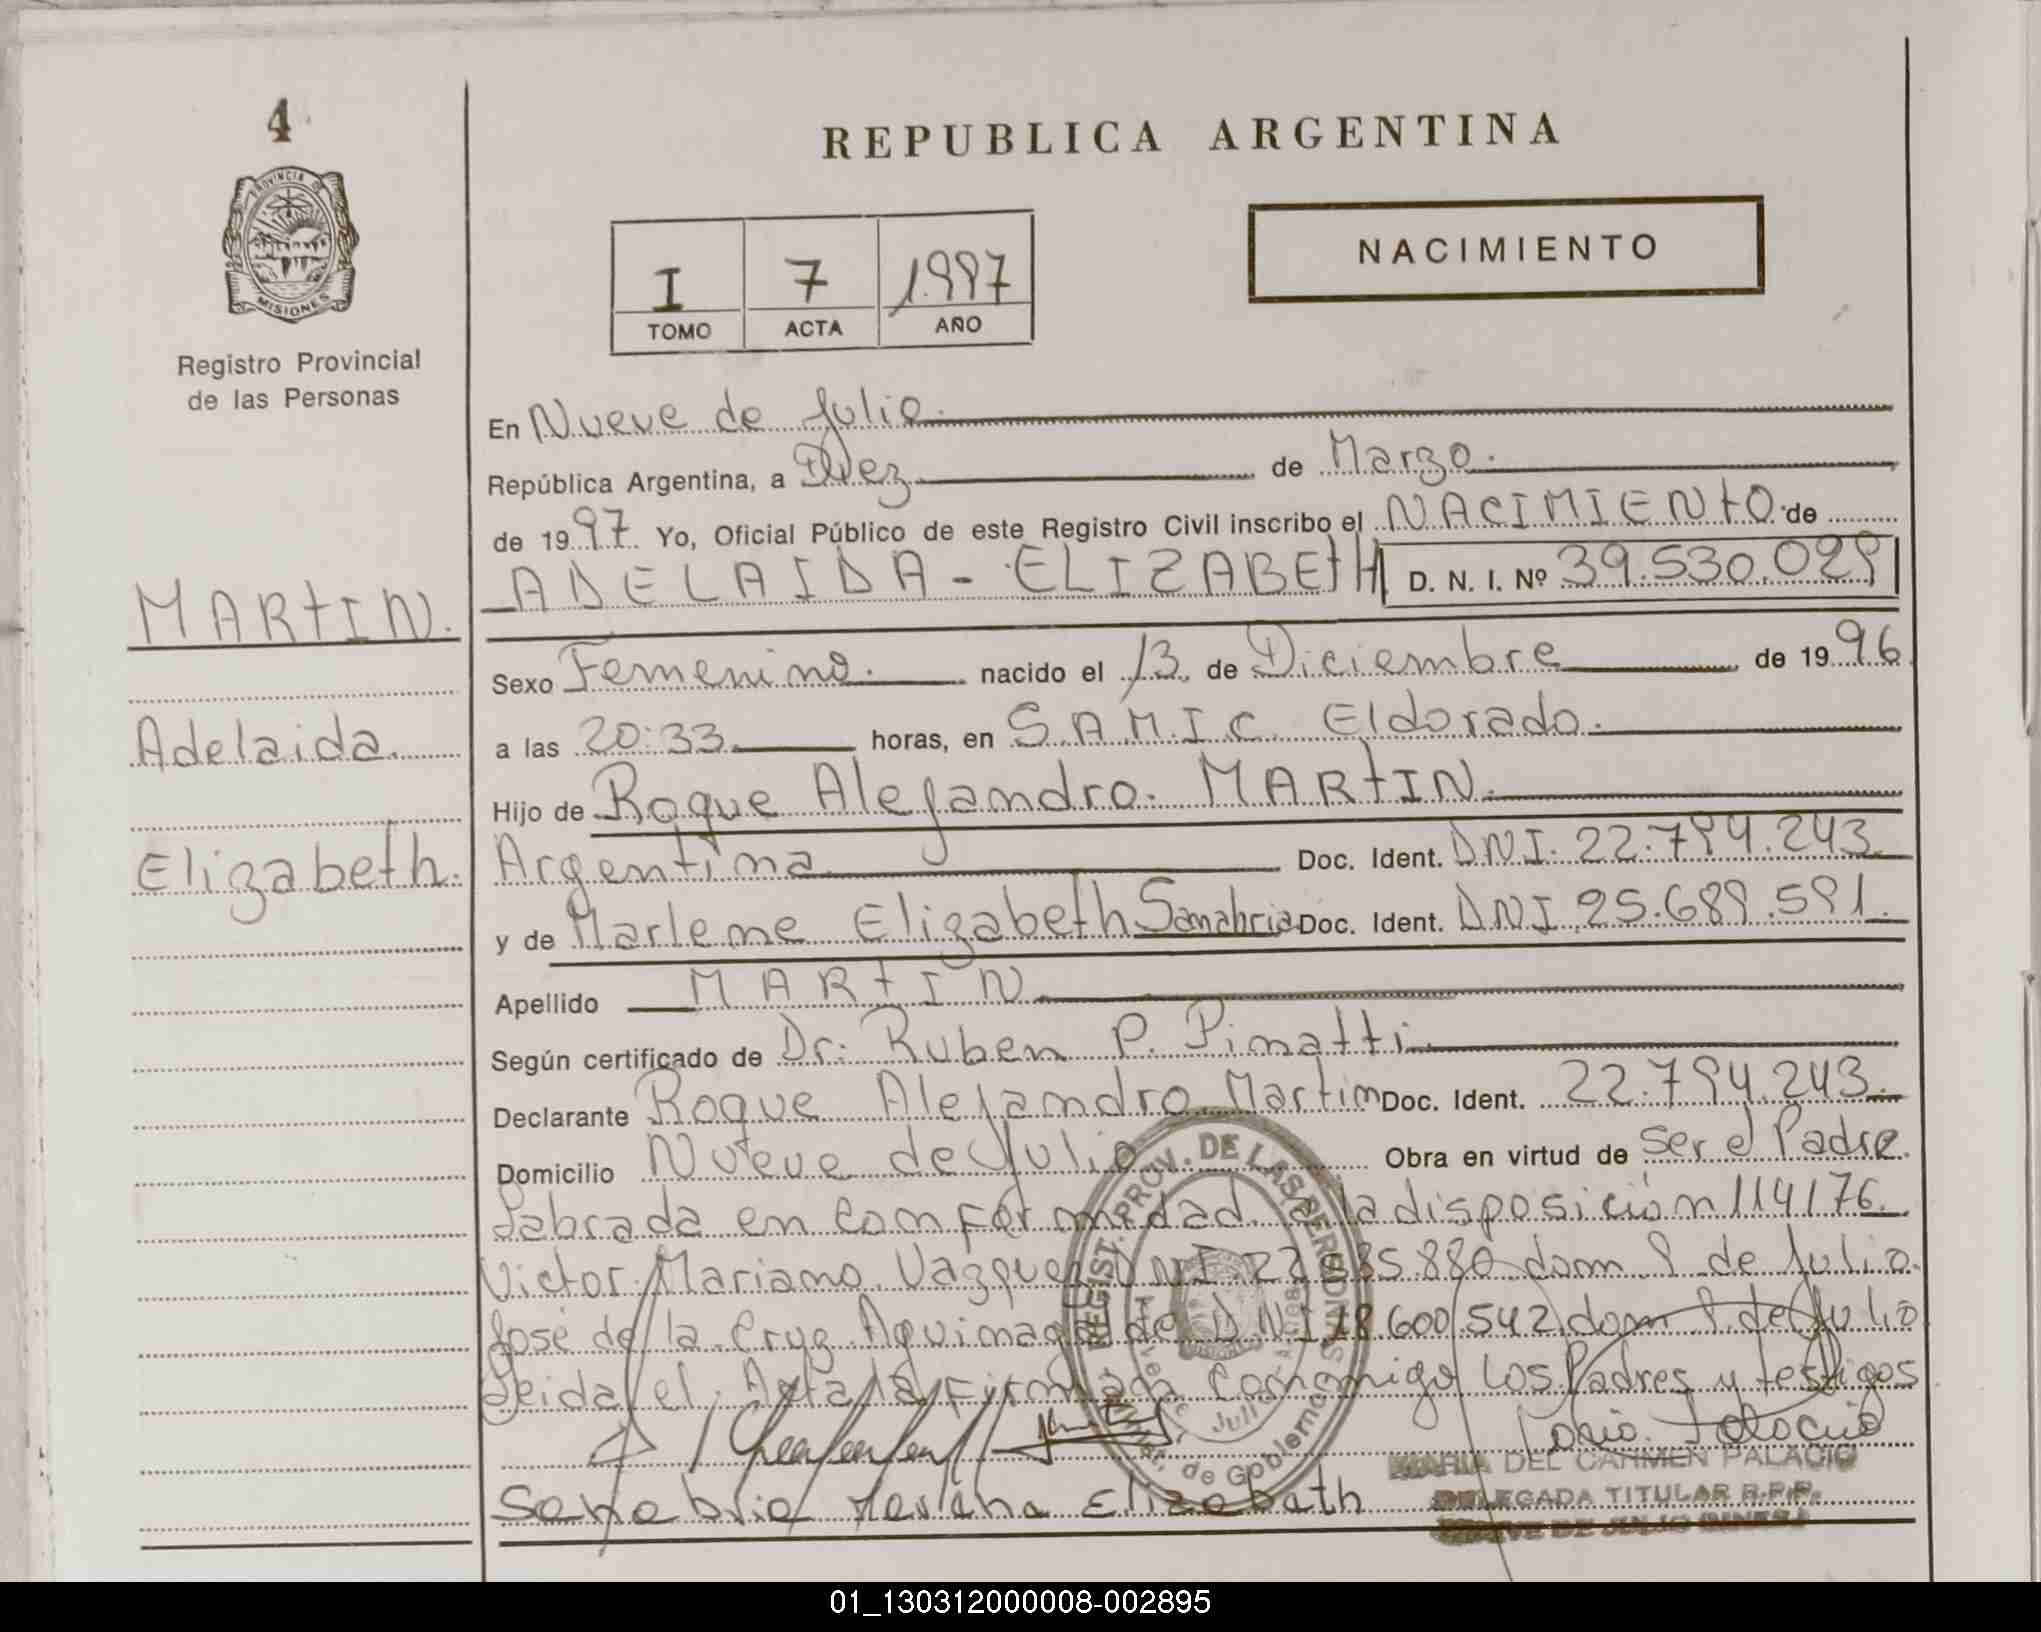 4
PROVINCIA DE
MISIONES
Registro Provincial
de las Personas
REPUBLICA ARGENTINA
I 7 1997
TOMO ACTA AÑO
NACIMIENTO
En Nueve de Julio.
República Argentina, a Diez de Marzo.
de 1997. Yo, Oficial Público de este Registro Civil inscribo el NACIMIENTO de
MARTIN.
ADELAIDA - ELIZABETH D. N. I. Nº 39.530.029
Sexo Femenino. nacido el 13 de Diciembre de 1996
Adelaida.
a las 20:33 horas, en S.A.M.I.C. Eldorado.
Hijo de Roque Alejandro. MARTIN.
Elizabeth.
Argentina Doc. Ident. DNI. 22.794.243.
y de Marlene Elizabeth Sanabria Doc. Ident. DNI 25.689.591.
Apellido MARTIN
Según certificado de Dr: Ruben P. Pinatti.
Declarante Roque Alejandro Martin Doc. Ident. 22.794.243.
Domicilio Nueve de Julio Obra en virtud de ser el Padre.
Labrada en conformidad a la disposición 114/76.
Victor Mariano Vazquez DNI 22. 880 dom 9 de Julio.
José de la Cruz DNI 18.600.542 dom 9 de Julio
Leida el Acta la firman conmigo los Padres y testigos
REGIST. PROV. DE LAS PERSONAS
Nueve de Julio
Minist. de Gobierno
Sanabria Marlene Elizabeth
MARIA DEL CARMEN PALACIO
DELEGADA TITULAR R.P.P.
NUEVE DE JULIO (MNES.)
01_130312000008-002895